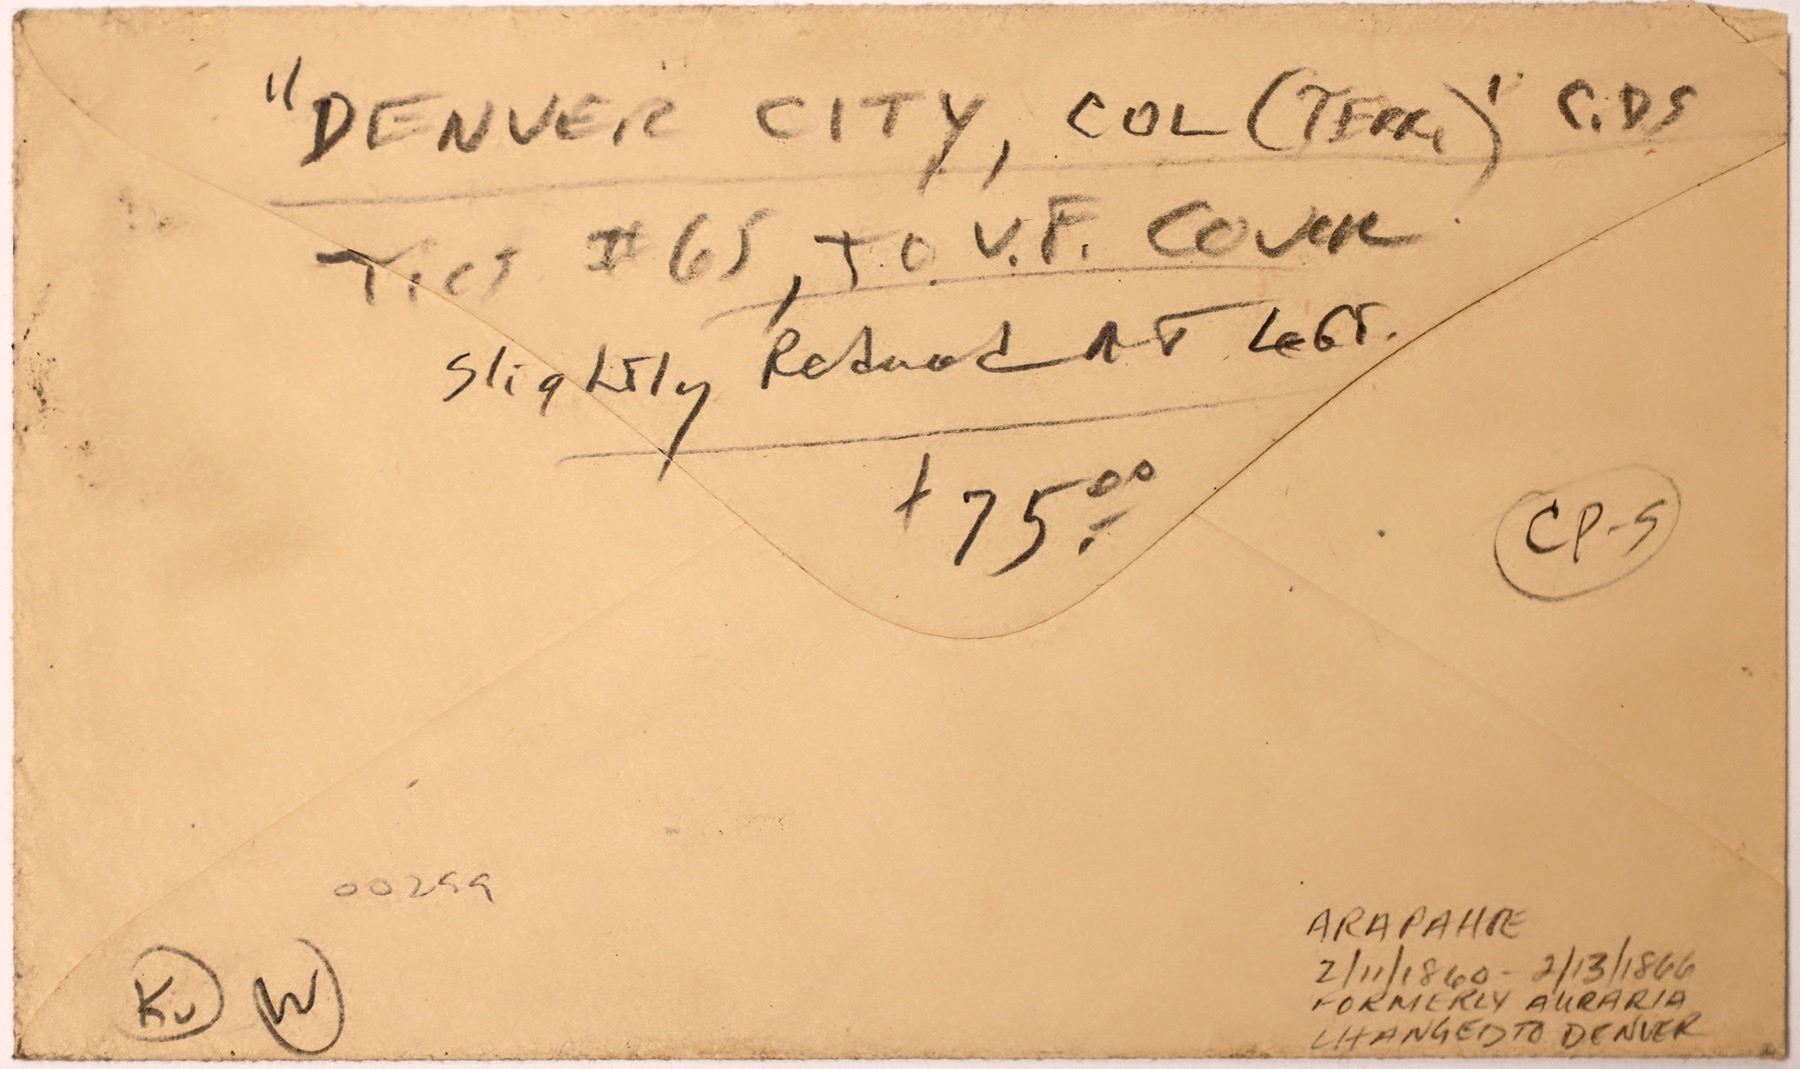 "DENVER CITY, COL (TERR.)" C.DS
TIES #65, F.O. V.F. COVER
slightly Reduced AT Left.
$75.00
CP-S
00299
Kv W
ARAPAHOE
2/11/1860 - 2/13/1866
FORMERLY AURARIA
CHANGED TO DENVER